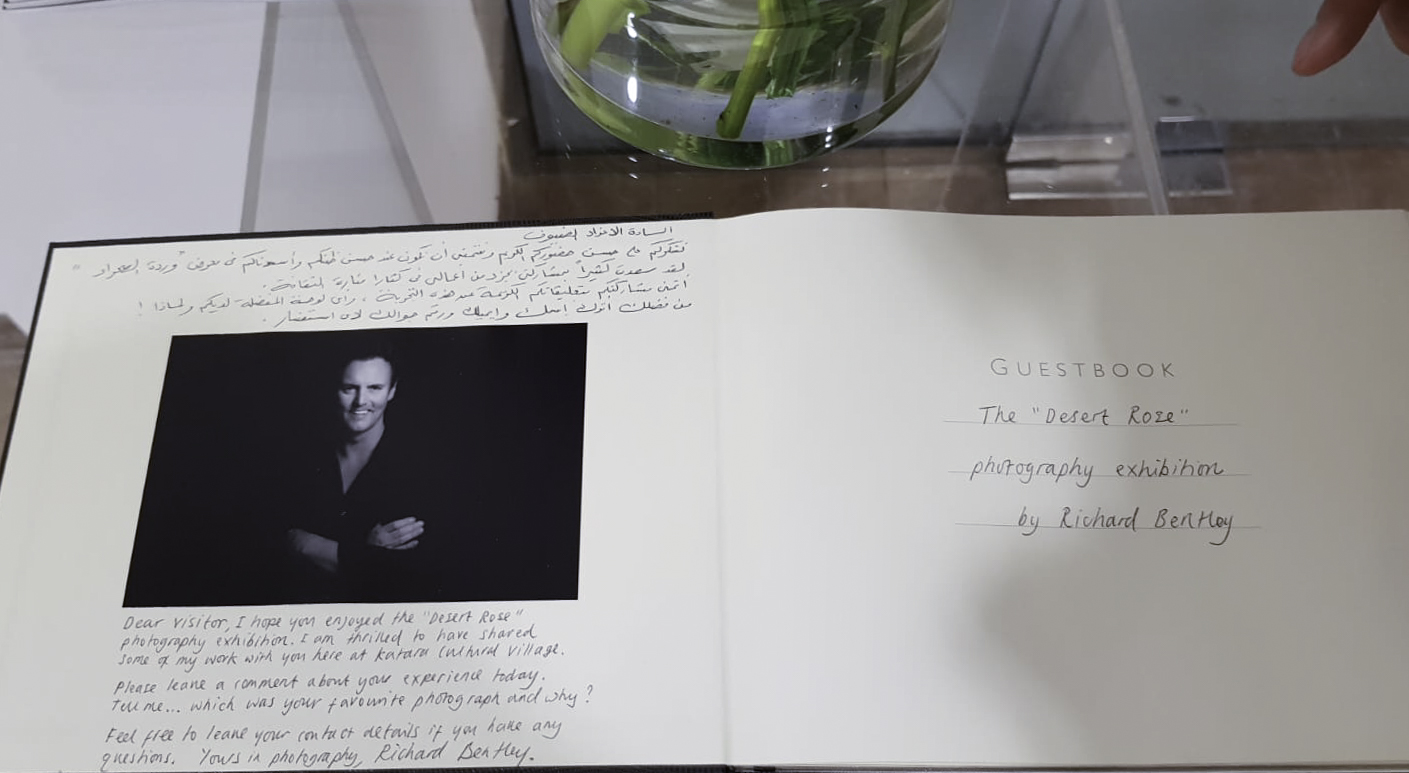 السادة الأعزاء الضيوف
نشكركم على حسن حضوركم الكريم ونتمنى أن نكون عند حسن ظنكم وأسعدناكم في معرض "وردة الصحراء"
لقد سعدت كثيراً بمشاركتي بجزء من أعمالي في كتارا منارة الثقافة.
أتمنى مشاركتكم بتعليقاتكم الكريمة عن هذه التجربة، وأي لوحة المفضلة لديكم ولماذا!
من فضلك أترك إسمك وايميلك ورقم جوالك لأي استفسار.
Dear Visitor, I hope you enjoyed the "Desert Rose"
photography exhibition. I am thrilled to have shared
some of my work with you here at Katara Cultural Village.
Please leave a comment about your experience today.
Tell me... which was your favourite photograph and why?
Feel free to leave your contact details if you have any
questions. Yours in photography, Richard Bentley.
GUESTBOOK
The "Desert Rose"
photography exhibition
by Richard Bentley